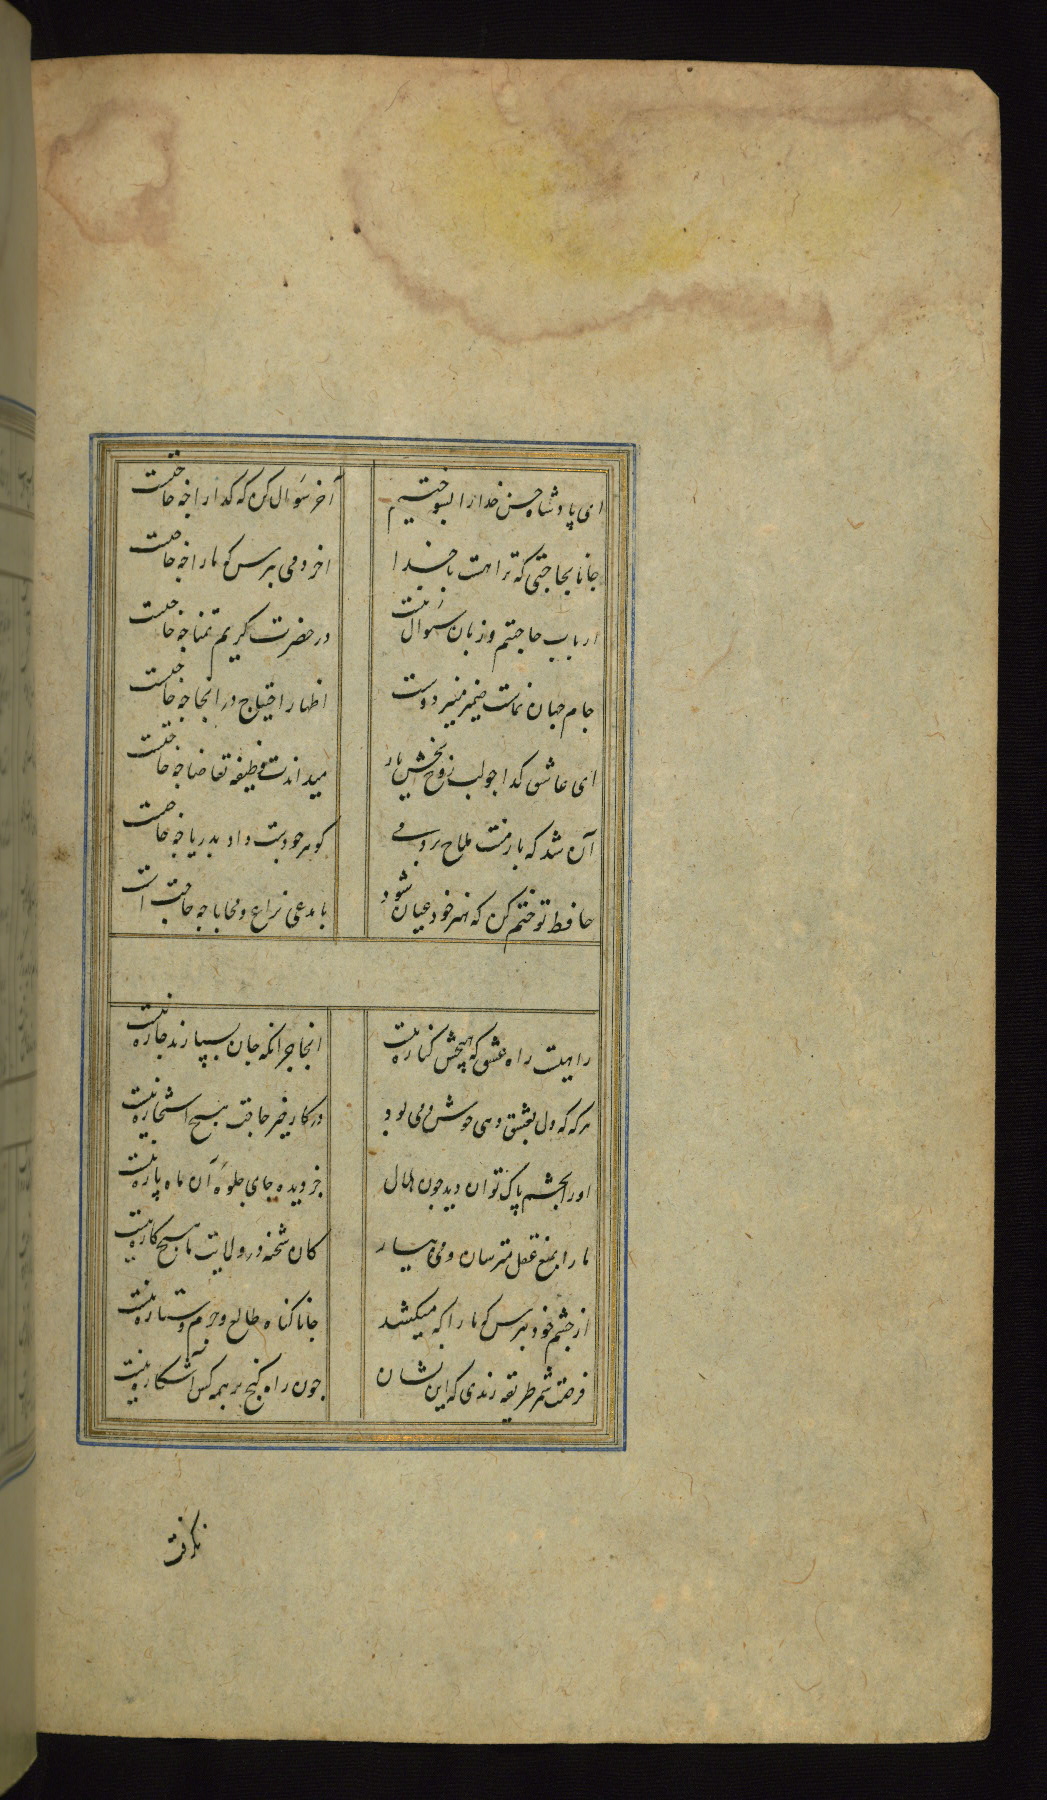 ای پادشاه حسن خدارا بسوختیم
آخر سؤال کن که کدا را چه حاجتست
جانا بحاجتی که ترا هست با خدا
اخر دمی بپرس که ما را چه حاجتست
ارباب حاجتیم و زبان سؤال نیست
در حضرت کریم تمنا چه حاجتست
جام جهان نماست ضمیر منیر دوست
اظهار احتیاج در انجا چه حاجتست
ای عاشق کدا چو لب روح بخش یار
میداندت وظیفه تقاضا چه حاجتست
آن شد که بار منت ملاح بردمی
کوهر چو دست داد بدریا چه حاجتست
حافظ تو ختم کن که هنر خود عیان شود
با مدعی نزاع و محابا چه حاجت است
راهیست راه عشق که هیچش کناره نیست
انجا جز انکه جان بسپارند چاره نیست
هر که که دل بعشق دهی خوش دمی بود
در کار خیر حاجت هیچ استخاره نیست
او را بچشم پاک توان دید چون هلال
هر دیده جای جلوه آن ماه پاره نیست
ما را بمنع عقل مترسان و می بیار
کان شحنه در ولایت ما هیچ کاره نیست
از چشم خود بپرس که ما را که میکشد
جانا کناه طالع و جرم ستاره نیست
فرصت شمر طریقه رندی که این نشان
چون راه کنج بر همه کس آشکاره نیست
نکرفت